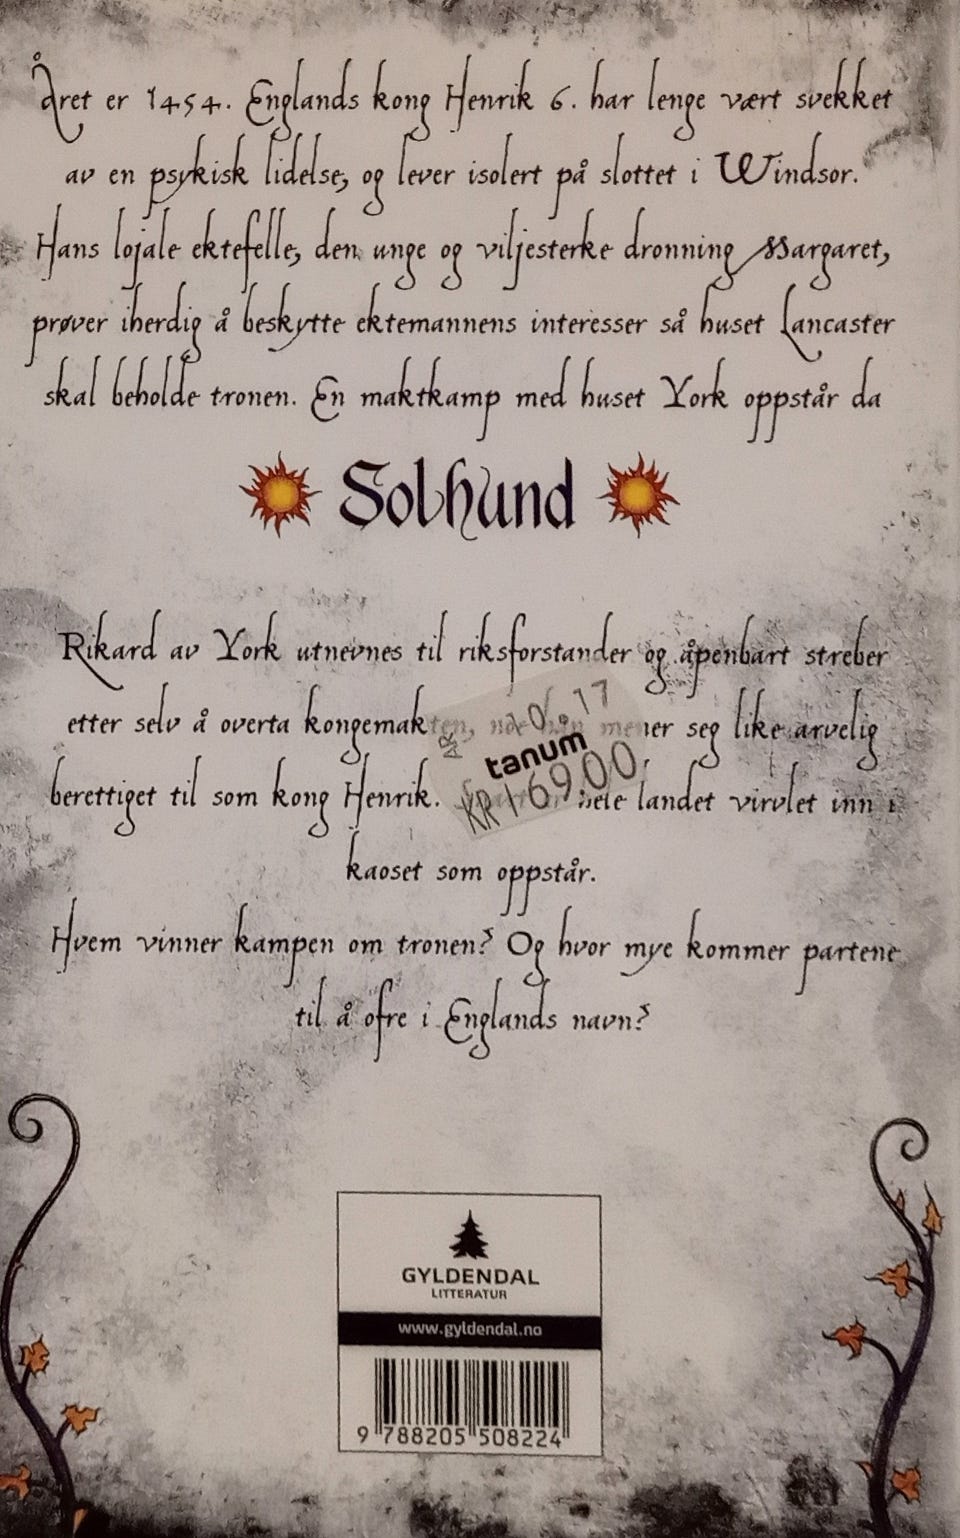 Året er 1454. Englands kong Henrik 6. har lenge vært svekket
av en psykisk lidelse, og lever isolert på slottet i Windsor.
Hans lojale ektefelle, den unge og viljesterke dronning Margaret,
prøver iherdig å beskytte ektemannens interesser så huset Lancaster
skal beholde tronen. En maktkamp med huset York oppstår da
Solhund
Rikard av York utnevnes til riksforstander og åpenbart streber
etter selv å overta kongemakten, når han mener seg like arvelig
berettiget til som kong Henrik. hele landet virvlet inn i
10.17
tanum
KR 169,00
kaoset som oppstår.
Hvem vinner kampen om tronen? Og hvor mye kommer partene
til å ofre i Englands navn?
GYLDENDAL
LITTERATUR
www.gyldendal.no
9 788205 508224